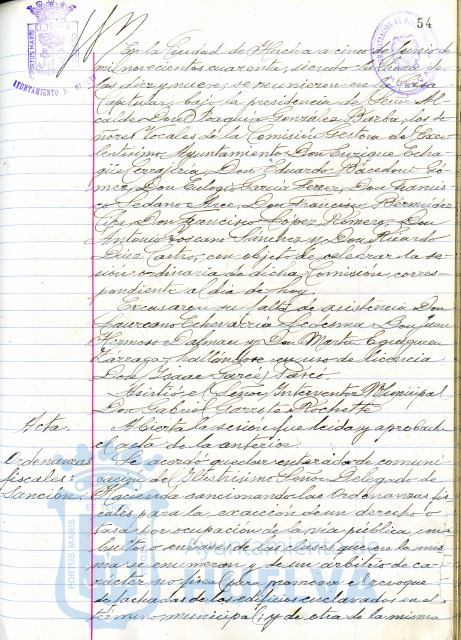 54
PORTUS MARIS
AYUNTAMIENTO DE
En la Ciudad de Huelva a cinco de Junio de
mil novecientos cuarenta, siendo la hora de
las diez y nueve, se reunieron en la Sala
Capitular, bajo la presidencia del Señor Al-
calde Don Joaquín González Barba, los Se-
ñores Vocales de la Comisión Gestora de Exce-
lentísimo Ayuntamiento, Don Enrique
Don Eduardo Gó-
mez, Don Eulogio García Don Francis-
co Sedano Don Francisco Bermúdez
Don Francisco López Romero, Don
Antonio Toscano Sánchez y Don Ricardo
Díaz Castro, con objeto de celebrar la se-
sión ordinaria de dicha Comisión, corres-
pondiente al día de hoy.
Excusaron su falta de asistencia Don
Laureano Echevarría Ledesma, Don Juan
Hermoso y Don Martín
hallándose en uso de licencia
Don Isaac García
Asistió el Señor Interventor Municipal
Don Gabriel
Acta. Abierta la sesión fue leída y aprobada
el acta de la anterior.
Ordenanzas Se acordó quedar enterado de comuni-
fiscales: cación de Ilustrísimo Señor Delegado de
Sanción. Hacienda sancionando las Ordenanzas fis-
cales para la exacción de un derecho o
tasa por ocupación de la vía pública con
bultos o en la que en la mis-
ma se enumeran y de un arbitrio de ca-
rácter no fiscal para promover el revoque
de fachadas de los edificios enclavados en el
término municipal; y de otra de la misma
Ayuntamiento de
HUELVA
PORTUS MARIS